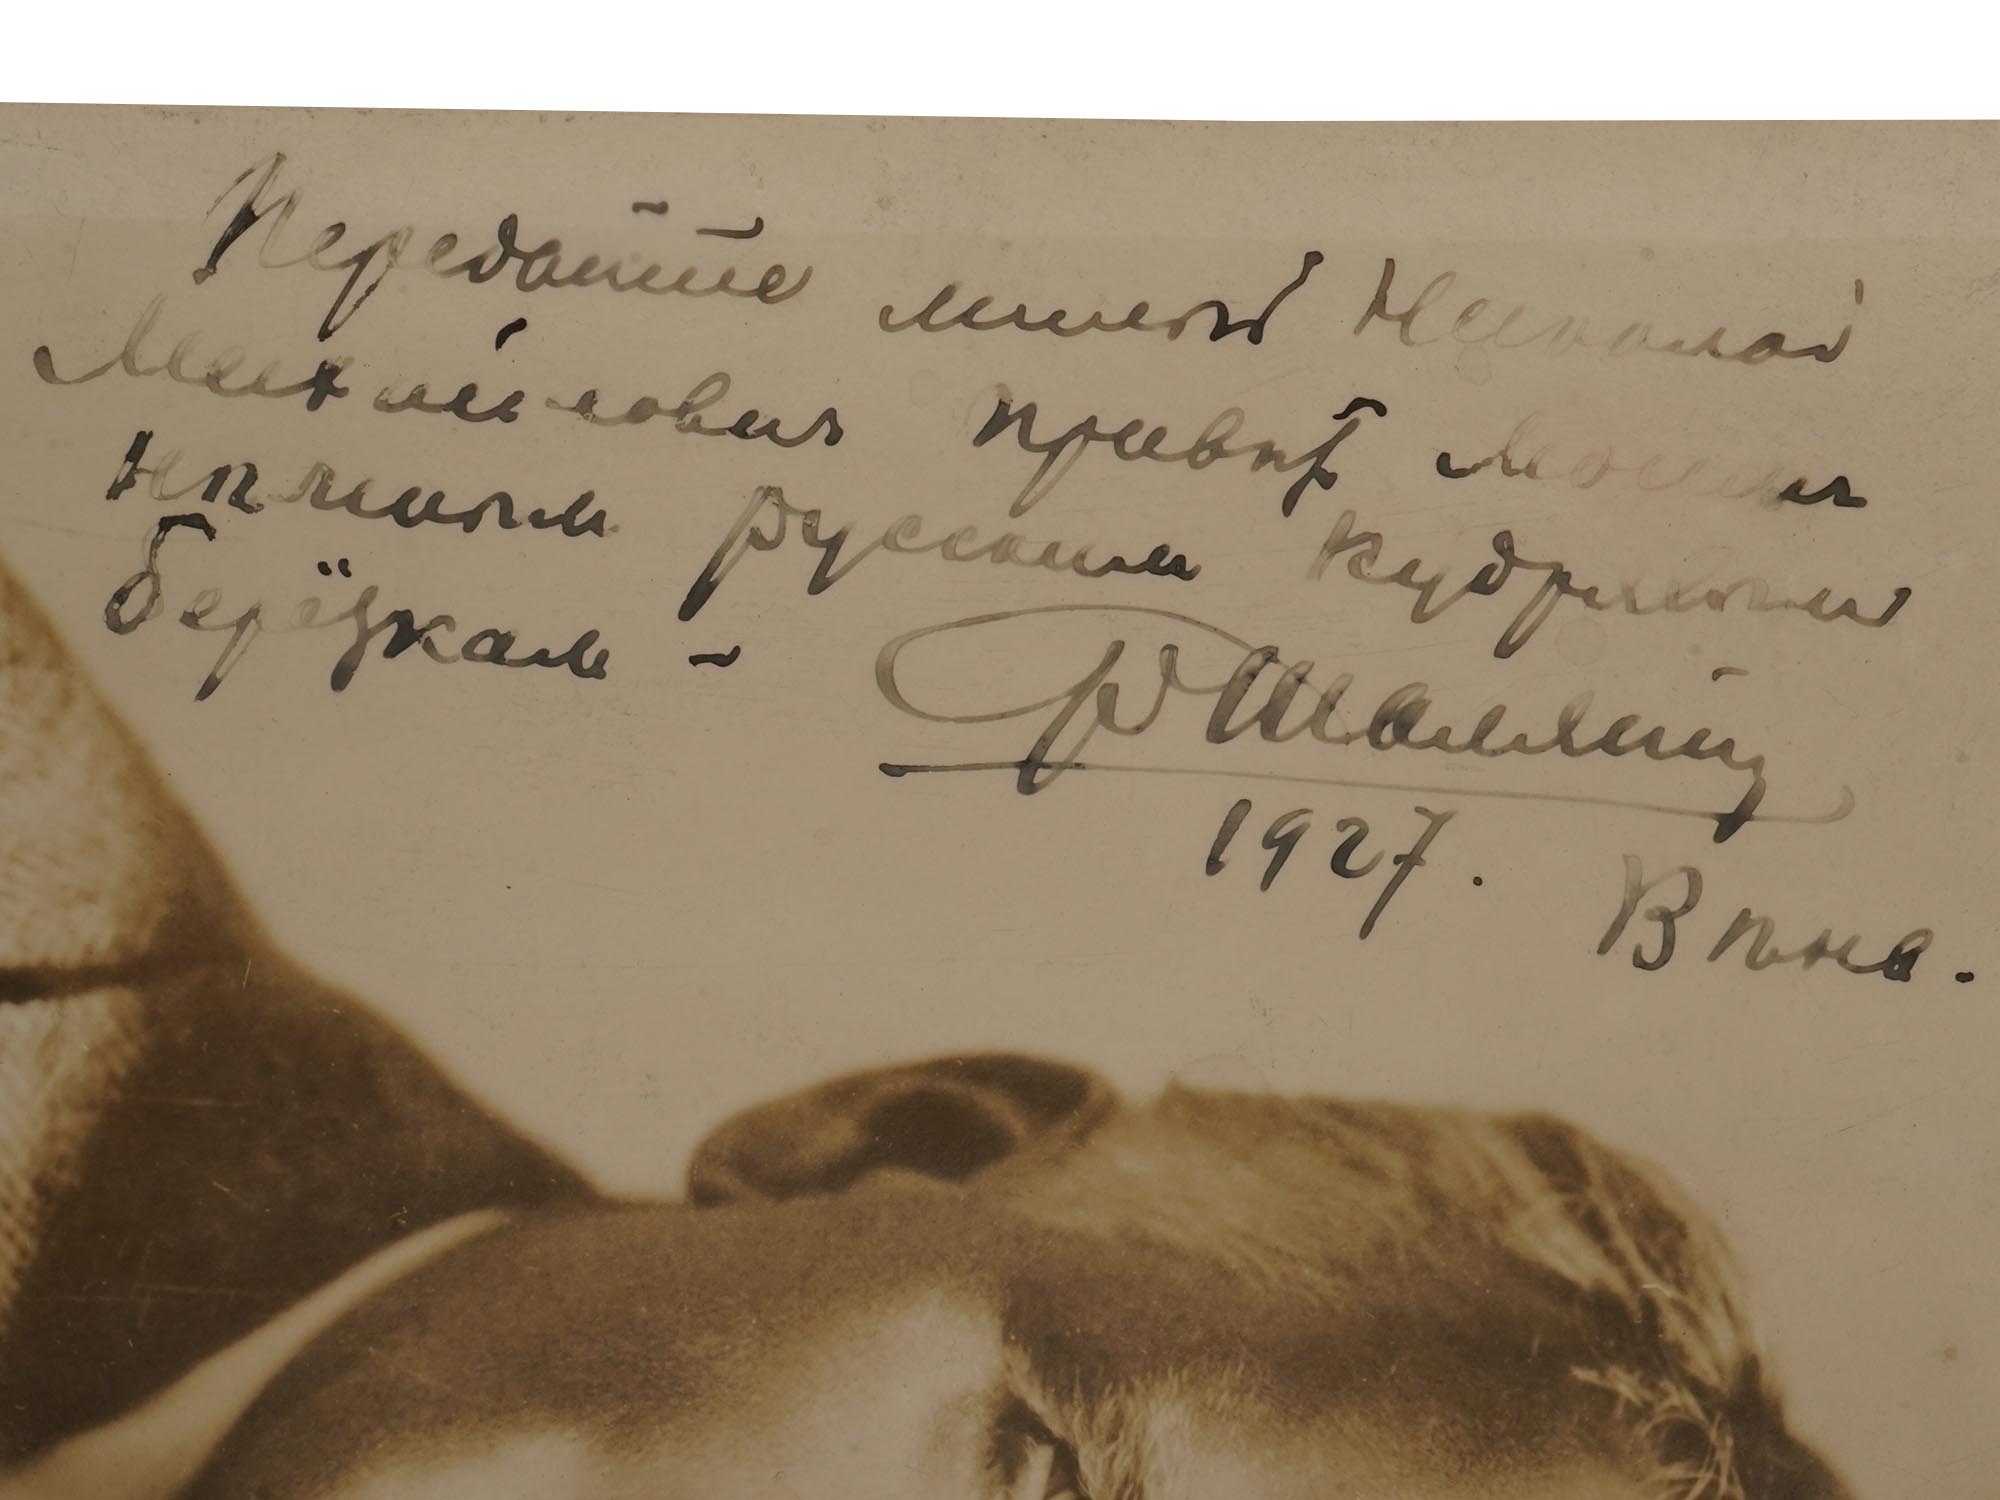 Передайте милый Николай
Михайлович привѣт моим
нѣжным русским кудрявым
берёзкам –
Ф Шаляпин
1927. Вѣна.